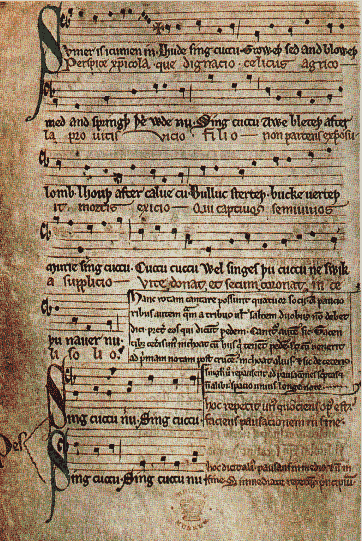 Svmer is icumen in· Lhude sing cuccu· Groweþ sed and bloweþ
Perspice xpicola que dignacio celicus agrico
med and springþ þe wde nu· Sing cuccu Awe bleteþ after
la pro uitis uicio filio non parcens exposu
lomb lhouþ after calue cu· Bulluc sterteþ· bucke uerteþ
it mortis exicio Qui captiuos semiuiuos
murie sing cuccu· Cuccu cuccu Wel singes þu cuccu ne swik
a supplicio Vite donat et secum coronat in ce
þu nauer nu·
li so li o·
Hanc rotam cantare possunt quatuor socij· A paucio
ribus autem a tribus uel saltem duobus non debet
dici· preter eos qui dicunt pedem· Canitur autem sic· Tacen
tibus ceteris unus inchoat cum hijs qui tenent pedem· Et cum uenerit
ad primam notam post crucem· inchoat alius· & sic de ceteris
singuli repausent ad pausaciones scriptas
non alibi· spacio unius longe note·
Pes
Sing cuccu nu· Sing cuccu·
hoc repetit unus quociens opus est·
faciens pausacionem in fine·
Sing cuccu· Sing cuccu nu
hoc dicit alius· pausans in medio & non in
fine· Set immediate repetens principium·